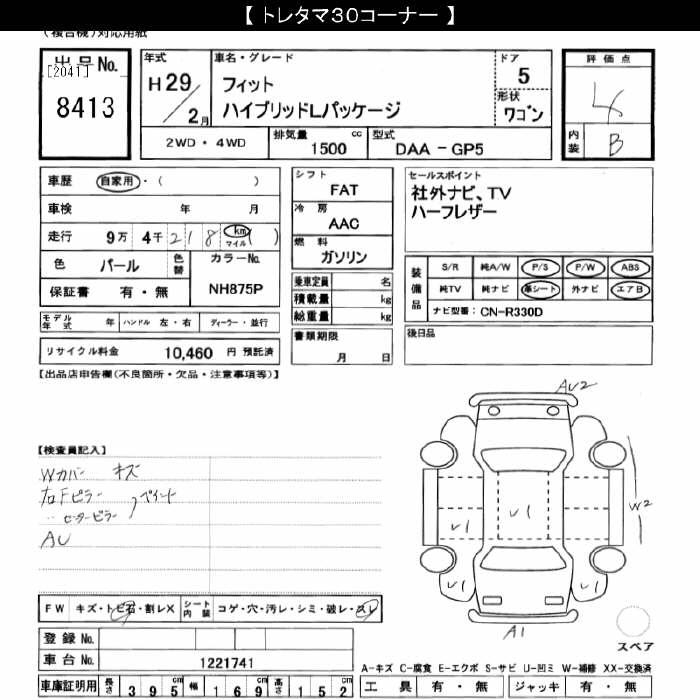 【 トレタマ30コーナー 】
(複合機)対応用紙
出品No.
[2041]
8413
年式
H 29 / 2月
車名・グレード
フィット
ハイブリッドLパッケージ
ドア
5
形状
ワゴン
2WD・4WD
排気量 1500 cc
型式 DAA－GP5
評価点
4
内装 B
車歴 自家用・( )
車検 年 月
走行 9万 4千 218 km マイル ( )
色 パール 色替
カラーNo. NH875P
保証書 有・無
モデル年式 年 ハンドル 左・右 ディーラー・並行
リサイクル料金 10,460 円 預託済
シフト
FAT
冷房
AAC
燃料
ガソリン
乗車定員 名
積載量 kg
総重量 kg
書類期限
月 日
セールスポイント
社外ナビ、TV
ハーフレザー
装備品
S/R 純A/W P/S P/W ABS
純TV 純ナビ 革シート 外ナビ エアB
ナビ型番： CN-R330D
後日品
【出品店申告欄(不良箇所・欠品・注意事項等)】
【検査員記入】
Wカバー キズ
右Fピラー
〃 センターピラー ペイント
AU
AU2
W2
U1
U1
U1
U1
A1
スペア
FW キズ・トビ石・割レX シート内装 コゲ・穴・汚レ・シミ・破レ・スレ
登録No.
車台No. 1221741
車庫証明用 長さ 395cm 幅 169cm 高さ 152cm
A-キズ C-腐食 E-エクボ S-サビ U-凹ミ W-補修 XX-交換済
工具 有・無 ジャッキ 有・無